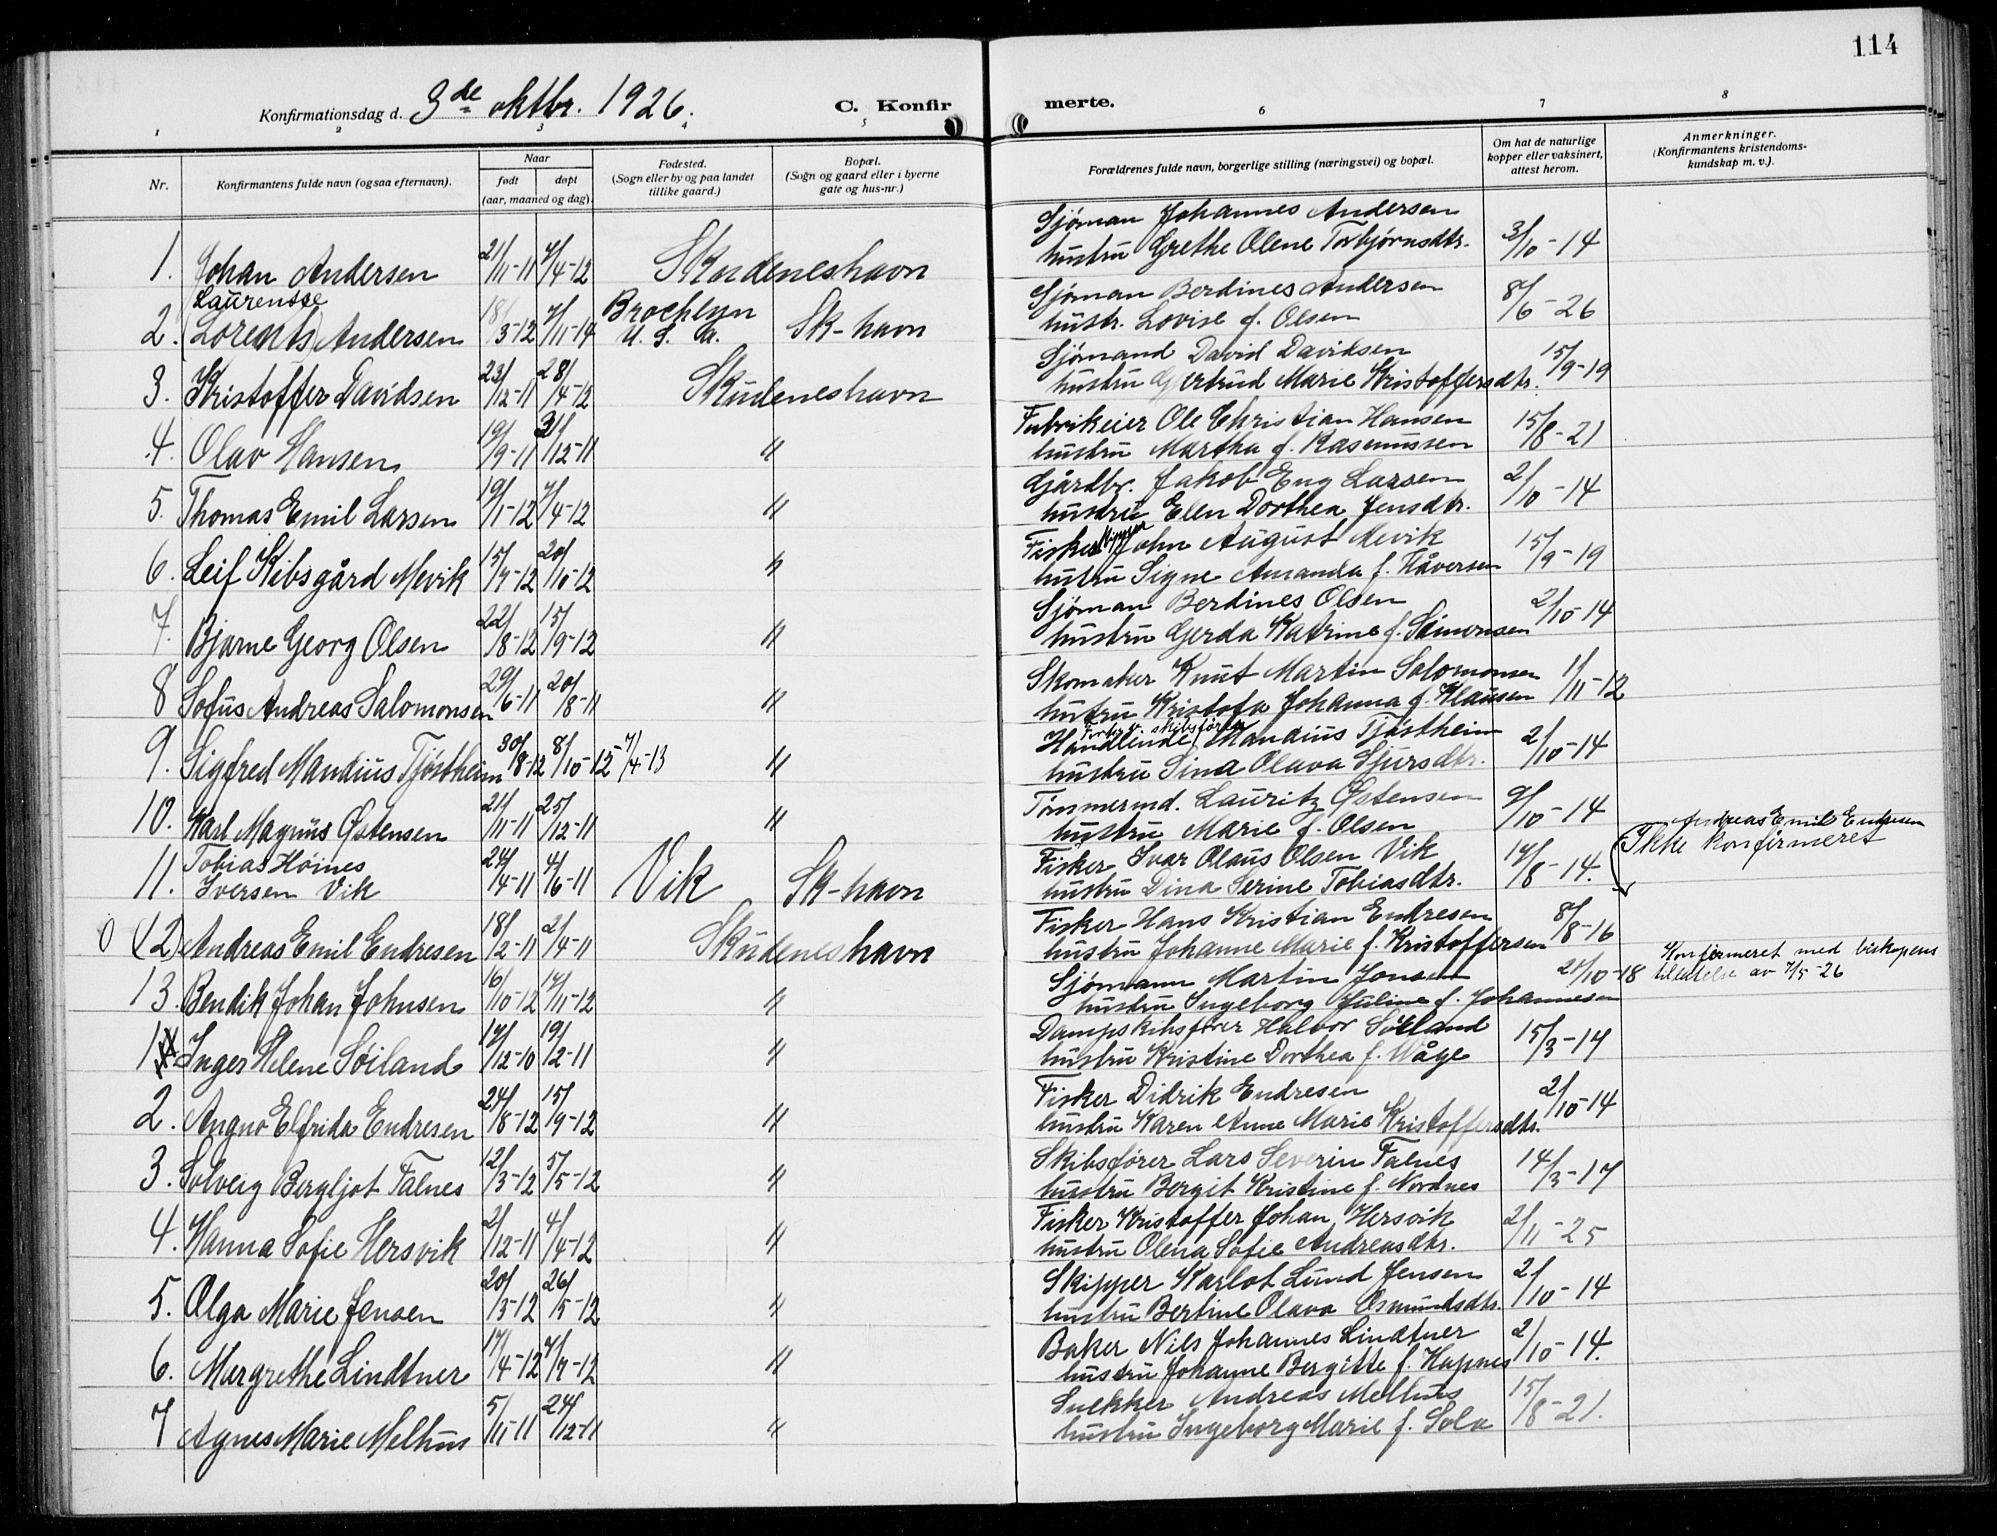 114
Konfirmationsdag d. 3de oktbr. 1926.
C. Konfirmerte.
1 2 3 4 5 6 7 8
Nr.
Konfirmantens fulde navn (ogsaa efternavn).
Naar
født
døpt
(aar, maaned og dag)
Fødested.
(Sogn eller by og paa landet
tillike gaard.)
Bopæl.
(Sogn og gaard eller i byerne
gate og hus-nr.)
Forældrenes fulde navn, borgerlige stilling (næringsvei) og bopæl.
Om hat de naturlige
kopper eller vaksinert,
attest herom.
Anmerkninger.
(Konfirmantens kristendoms-
kundskap m. v.).
1. Johan Andersen 21/11-11 7/4-12 Skudeneshavn Sjøman Johannes Andersen 3/10-14
hustru Grethe Olene Torbjørnsdtr.
Laurentse
2. (Lorents) Andersen 18/3-12 7/11-14 Brochlyn U. S. A. Sk-havn Sjøman Berdines Andersen 8/6-26
hustr. Lovise f. Olsen
3. Kristoffer Davidsen 23/12-11 28/4-12 Skudeneshavn Sjømand David Davidsen 15/9-19
hustru Gjertrud Marie Kristoffersdtr.
4. Olav Hansen 19/9-11 31/12-11 " Fabrikeier Ole Christian Hansen 15/8-21
hustru Martha f. Rasmussen
5. Thomas Emil Larsen 19/1-12 7/4-12 " Gårdbr. Jakob Eng Larsen 2/10-14
hustru Elen Dorthea Jensdtr.
6. Leif Kibsgård Mevik 15/7-12 20/10-12 " Fisker John August Mevik 15/9-19
hustru Signe Amanda f. Håversen
7. Bjarne Georg Olsen 22/8-12 15/9-12 " Sjøman Berdines Olsen 2/10-14
hustru Gerda Katrine f. Simonsen
8 Sofus Andreas Salomonsen 29/6-11 20/8-11 " Skomaker Knut Martin Solomonsen 1/11-12
hustru Kristofa Johanna f. Klausen
9. Sigfred Mandius Tjøstheim 30/8-12 8/10-12 7/4-13 " Handlende Mandius Tjøstheim 2/10-14
hustru Sina Olava Sjursdtr.
10. Karl Magnus Østensen 21/11-11 25/12-11 " Tømmermd. Lauritz Østensen 9/10-14
hustru Marie f. Olsen
Andreas Emil Endresen
Ikke konfirmeret
11. Tobias Høines Iversen Vik 24/4-11 4/6-11 Vik Sk-havn Fisker Ivar Olaus Olsen Vik 17/8-14.
hustru Dina Serine Tobiasdtr.
0 (12) Andreas Emil Endresen 18/2-11 2/4-11 Skudeneshavn Fisker Hans Kristian Endresen 8/8-16
hustru Johanne Marie f. Kristoffersen
13. Bendik Johan Johnsen 16/10-12 17/11-12 " Sjømann Martin Jonsen 21/10-18 Konfirmeret med biskopens
hustru Ingeborg Juline f. Johannesen tilladelse av 7/5-26
1 Inger Helene Søiland 17/12-10 19/12-11 " Dampskibsfører Halvor Søiland 15/3-14
hustru Kristine Dorthea f. Våge
2. Angno Elfrida Endresen 24/8-12 15/9-12 " Fisker Didrik Endresen 2/10-14
hustru Karen Anne Marie Kristoffersdtr.
3. Solveig Bergljot Falnes 12/3-12 5/5-12 " Skibsfører Lars Severin Falnes 14/3-17
hustru Bergit Kristine f. Nordnes
4. Hanna Sofie Hersvik 2/12-11 4/4-12 " Fisker Kristoffer Johan Hersvik 2/11-25
hustru Olena Sofie Andreasdtr.
5. Olga Marie Jensen 20/3-12 26/5-12 " Skipper Karlot Lund Jensen 2/10-14
hustru Bertine Olava Osmundsdtr.
6. Margrethe Lindtner 17/4-12 7/7-12 " Baker Nils Johannes Lindtner 2/10-14.
hustru Johanne Bergitte f. Hapnes
7 Agnes Marie Melhus 5/11-11 24/12-11 " Snekker Andreas Melhus 15/8-21.
hustru Ingeborg Marie f. Sola